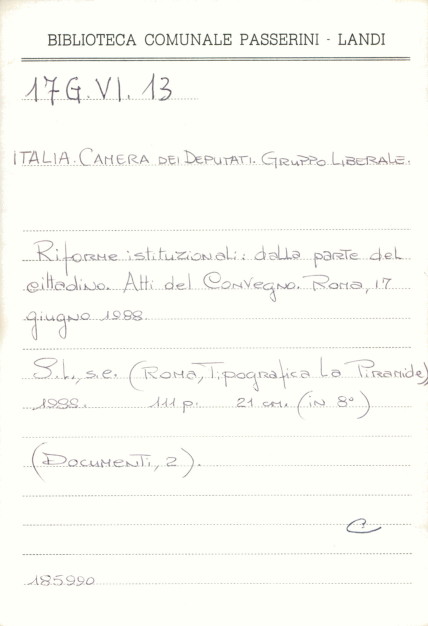 BIBLIOTECA COMUNALE PASSERINI - LANDI
17G.VI.13
ITALIA. CAMERA DEI DEPUTATI. GRUPPO LIBERALE.
Riforme istituzionali: dalla parte del
cittadino. Atti del Convegno. Roma, 17
giugno 1988.
S.l., s.e. (Roma, Tipografica La Piramide),
1988. 111 p. 21 cm. (in 8°)
(Documenti, 2).
C
185990